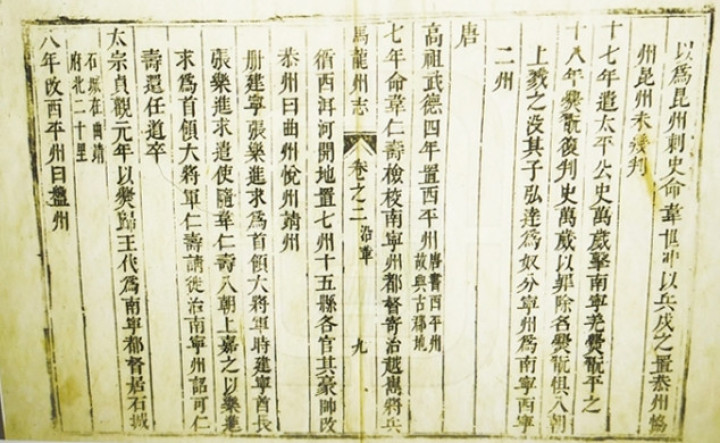 以爲昆州刺史命韋世冲以兵戍之置恭州協
州昆州未幾判
十七年遣太平公史萬歲擊南寧羌爨翫平之
十八年爨翫復判史萬歲以罪除名爨翫俱入朝
上戮之没其子弘達爲奴分寧州爲南寧西寧
二州
唐
高祖武德四年置西平州唐書西平州故興古郡地
七年命韋仁壽檢校南寧州都督寄治越嶲將兵
馬龍州志 卷之二 沿革 九
循西洱河開地置七州十五縣各官其豪帥改
恭州曰曲州悅州靖州
册建寧張樂進求爲首領大將軍時建寧酋長
張樂進求遣使隨韋仁壽入朝上嘉之以樂進
求爲首領大將軍仁壽請徙治南寧州詔可仁
壽還任道卒
太宗貞觀元年以爨歸王代爲南寧都督居石城
石城在曲靖府北二十里
八年改西平州曰盤州